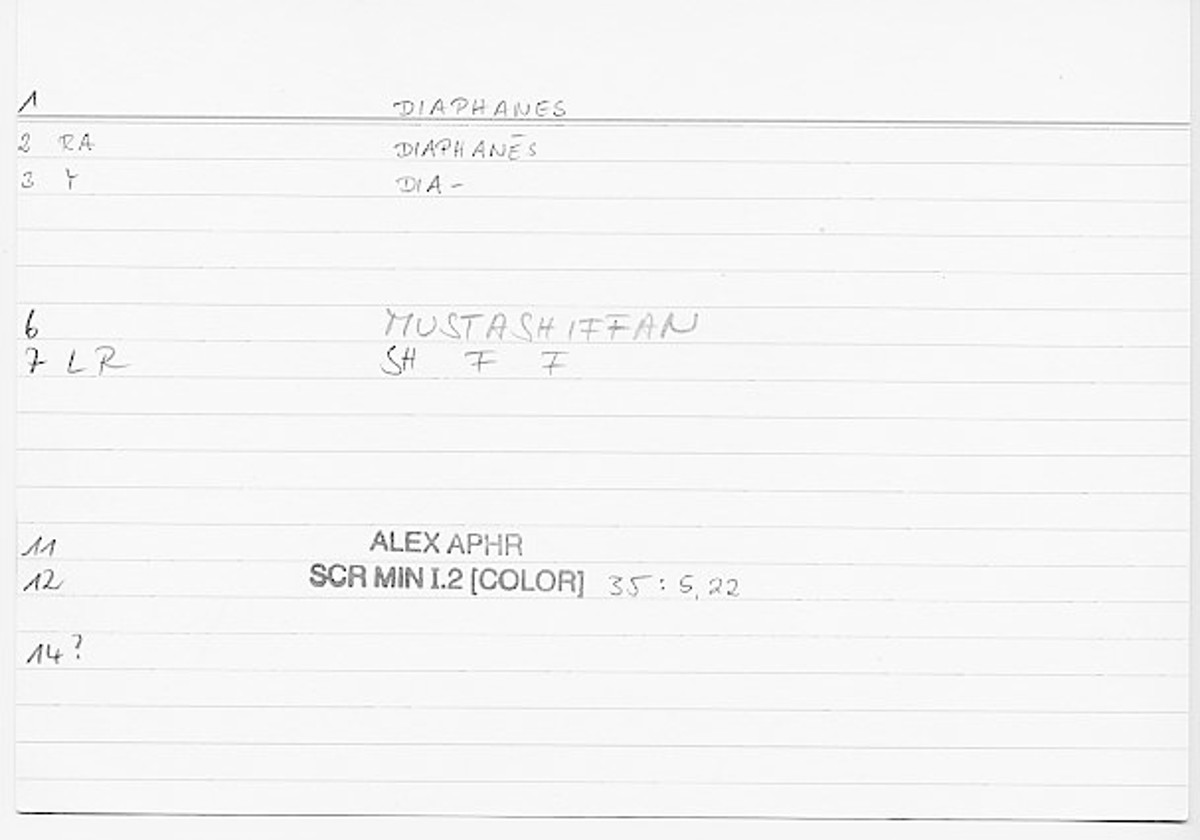 1 DIAPHANES
2 RA DIAPHANĒS
3 Y DIA-
6 MUSTASHIFFAN
7 LR SH F F
11 ALEX APHR
12 SCR MIN I.2 [COLOR] 35:5,22
14?